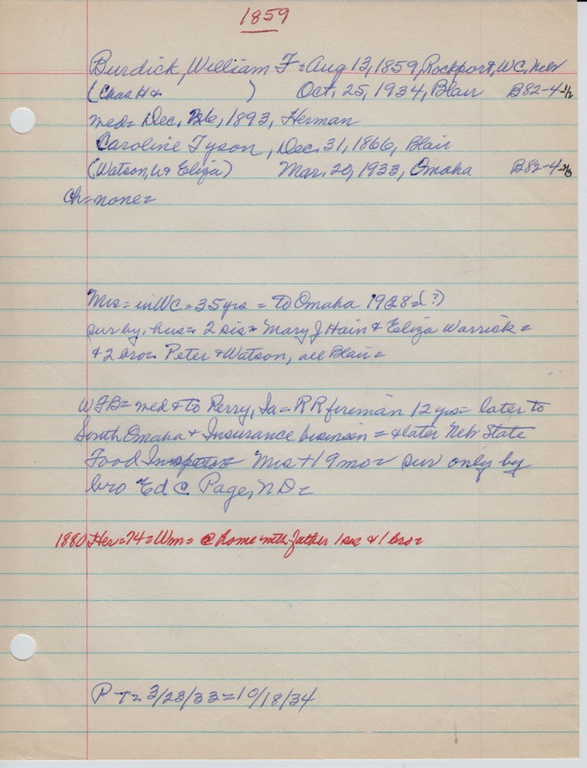 1859
Burdick, William F = Aug 13, 1859, Rockport, WC, Nebr
(Chas H + ) Oct. 25, 1934, Blair B82-4-1/2
med = Dec. 26, 1893, Herman
Caroline Tyson, Dec. 31, 1866, Blair
(Watson, W + Eliza) Mar. 20, 1933, Omaha B82-4-
Ch = none =
Mrs = in WC = 35 yrs = to Omaha 1928 = (?)
sur by, hus = 2 sis = Mary J Hain + Eliza Warrick =
+ 2 bro = Peter + Watson, all Blair =
WFB = med + to Perry, Ia = RR fireman 12 yrs = later to
South Omaha + Insurance business = + later Nebr State
Food Inspector = Mrs + 19 mo = sur only by
bro Ed C. Page, ND =
1880 Her = 74 = Wm = @ home with father 1 sis + 1 bro =
P-T = 3/23/33 = 10/18/34